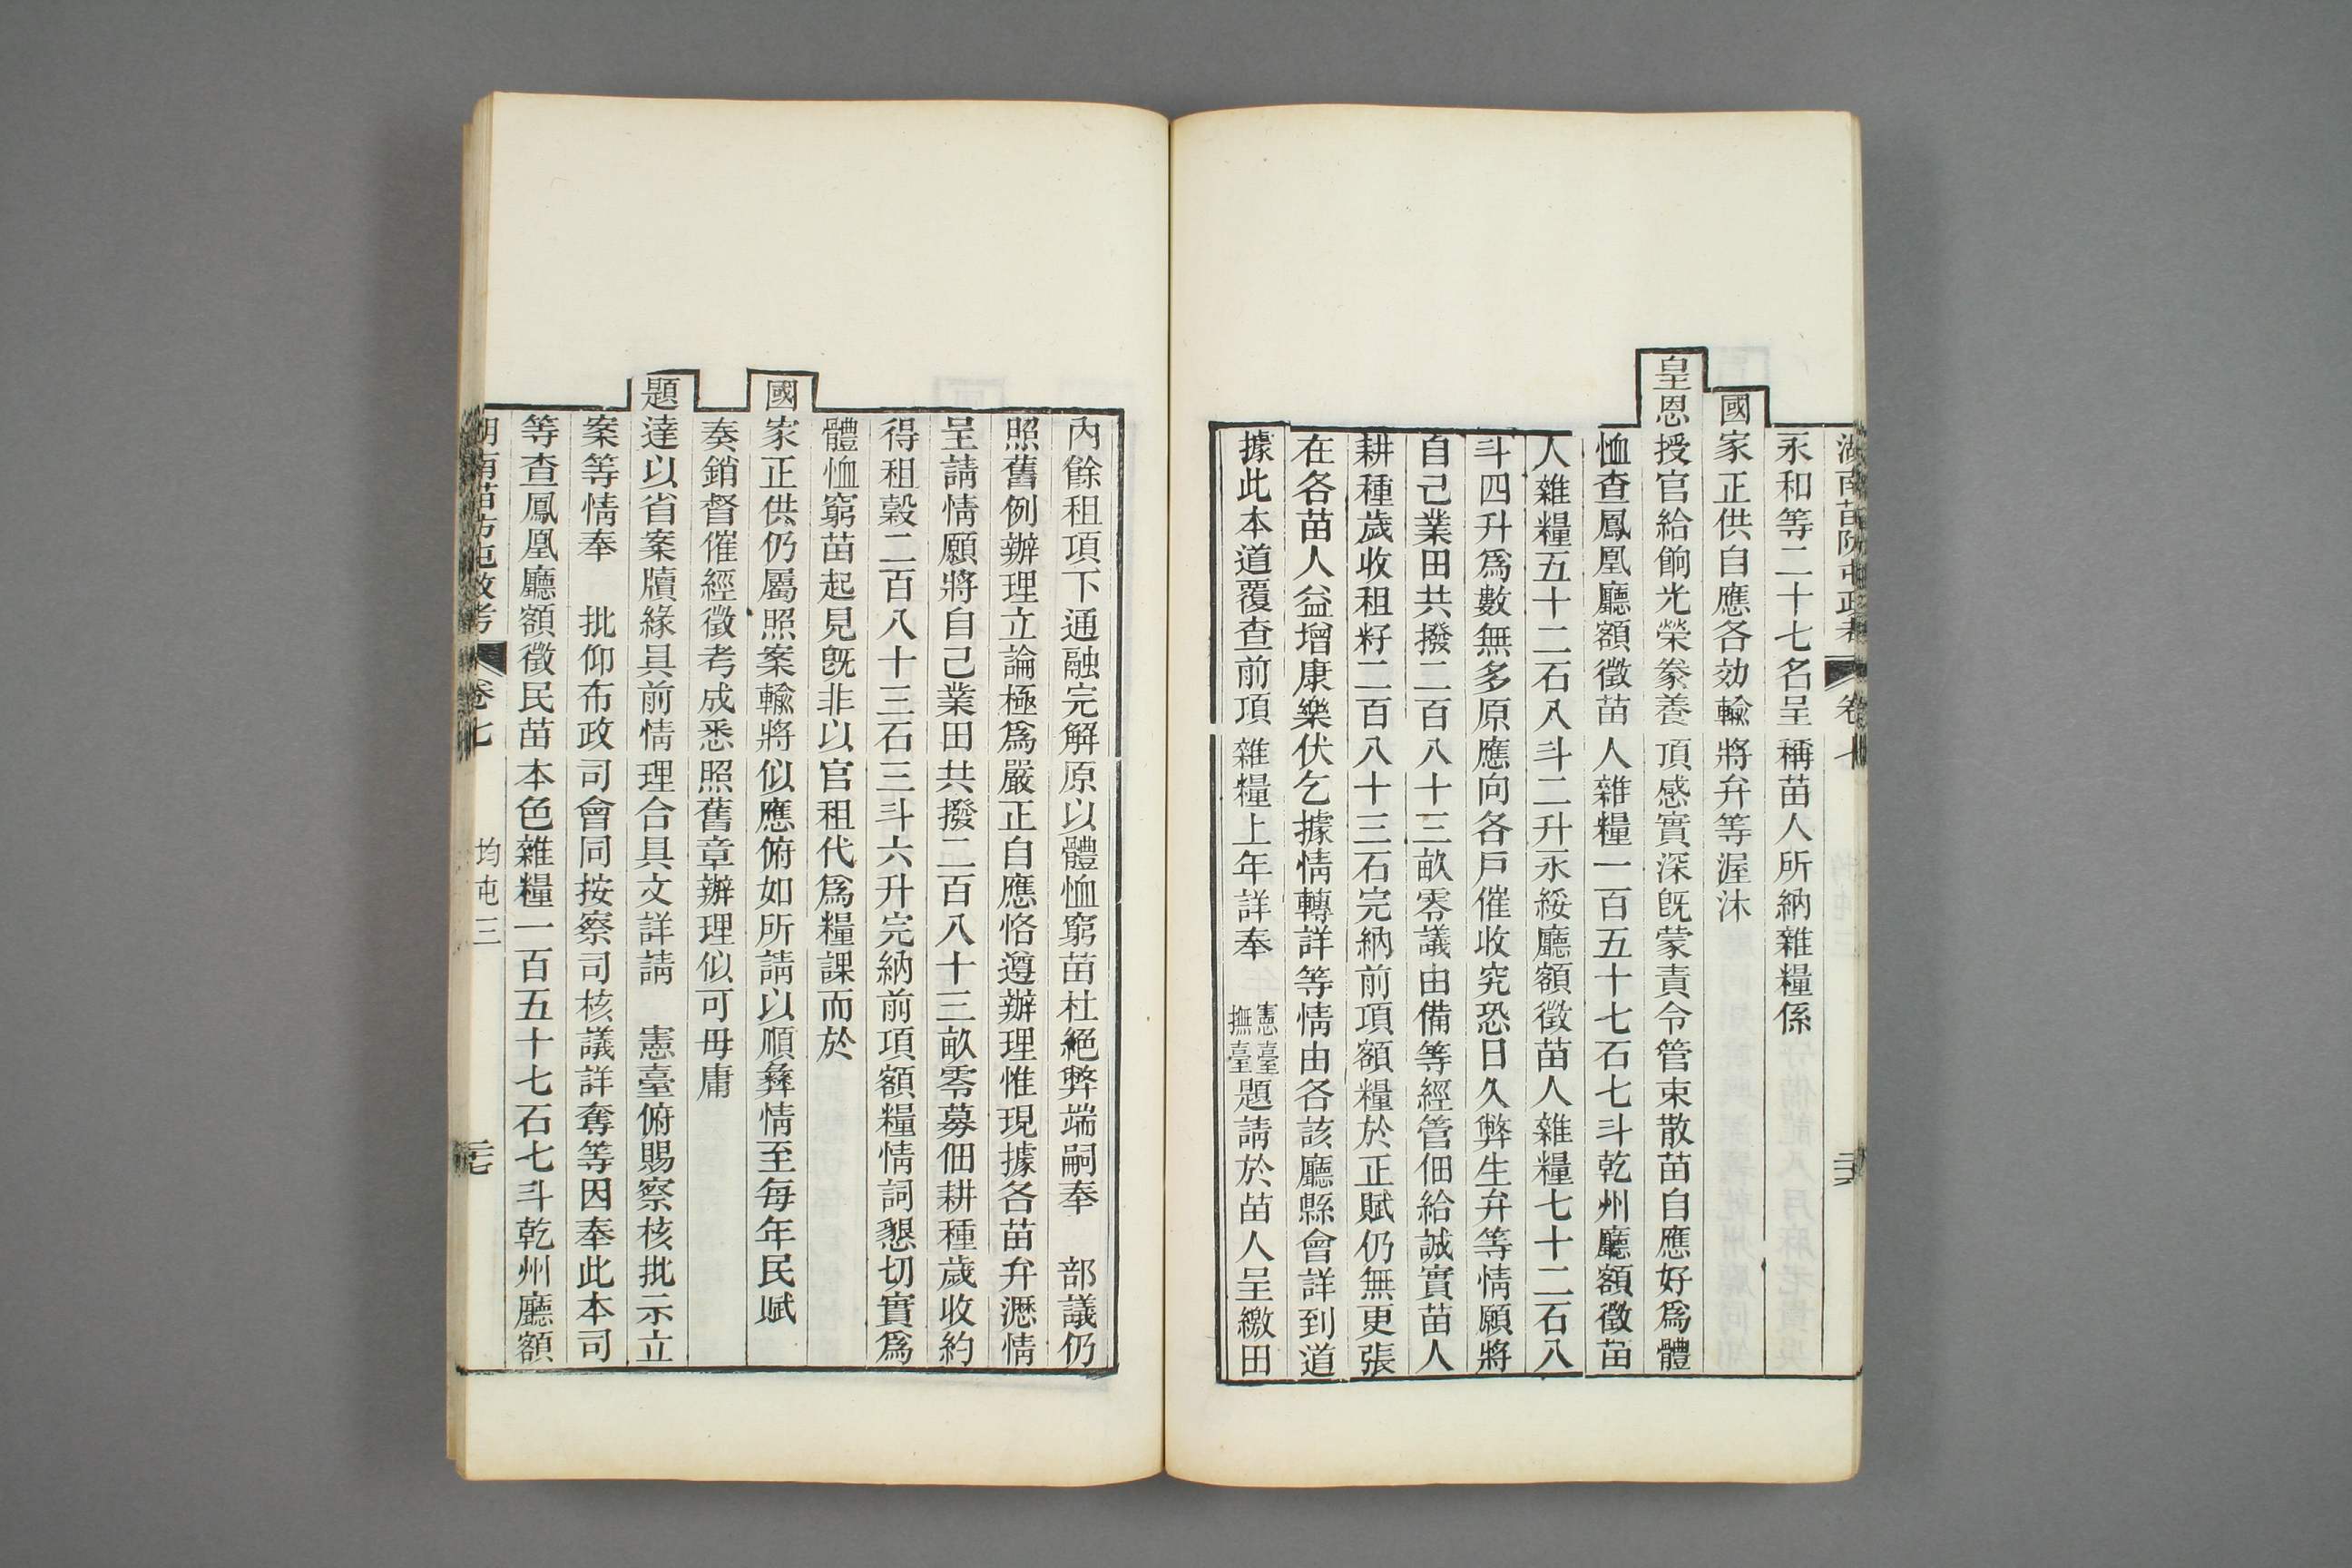 湖南苗防屯政考 卷七
永和等二十七名呈稱苗人所納雜糧係
國家正供自應各効輸將弁等渥沐
皇恩授官給餉光榮豢養頂感實深旣蒙責令管束散苗自應好爲體
恤查鳳凰廳額徵苗人雜糧一百五十七石七斗乾州廳額徵苗
人雜糧五十二石八斗二升永綏廳額徵苗人雜糧七十二石八
斗四升爲數無多原應向各戶催收究恐日久弊生弁等情願將
自己業田共撥二百八十三畝零議由備等經管佃給誠實苗人
耕種歲收租籽二百八十三石完納前項額糧於正賦仍無更張
在各苗人益增康樂伏乞據情轉詳等情由各該廳縣會詳到道
據此本道覆查前項雜糧上年詳奉 憲臺撫臺題請於苗人呈繳田
內餘租項下通融完解原以體恤窮苗杜絕弊端嗣奉 部議仍
照舊例辦理立論極爲嚴正自應恪遵辦理惟現據各苗弁瀝情
呈請情願將自己業田共撥二百八十三畝零募佃耕種歲收約
得租穀二百八十三石三斗六升完納前項額糧情詞懇切實爲
體恤窮苗起見旣非以官租代爲糧課而於
國家正供仍屬照案輸將似應俯如所請以順彝情至每年民賦
奏銷督催經徵考成悉照舊章辦理似可毋庸
題達以省案牘緣具前情理合具文詳請 憲臺俯賜察核批示立
案等情奉 批仰布政司會同按察司核議詳奪等因奉此本司
等查鳳凰廳額徵民苗本色雜糧一百五十七石七斗乾州廳額
湖南苗防屯政考 卷七 均屯三 二十七